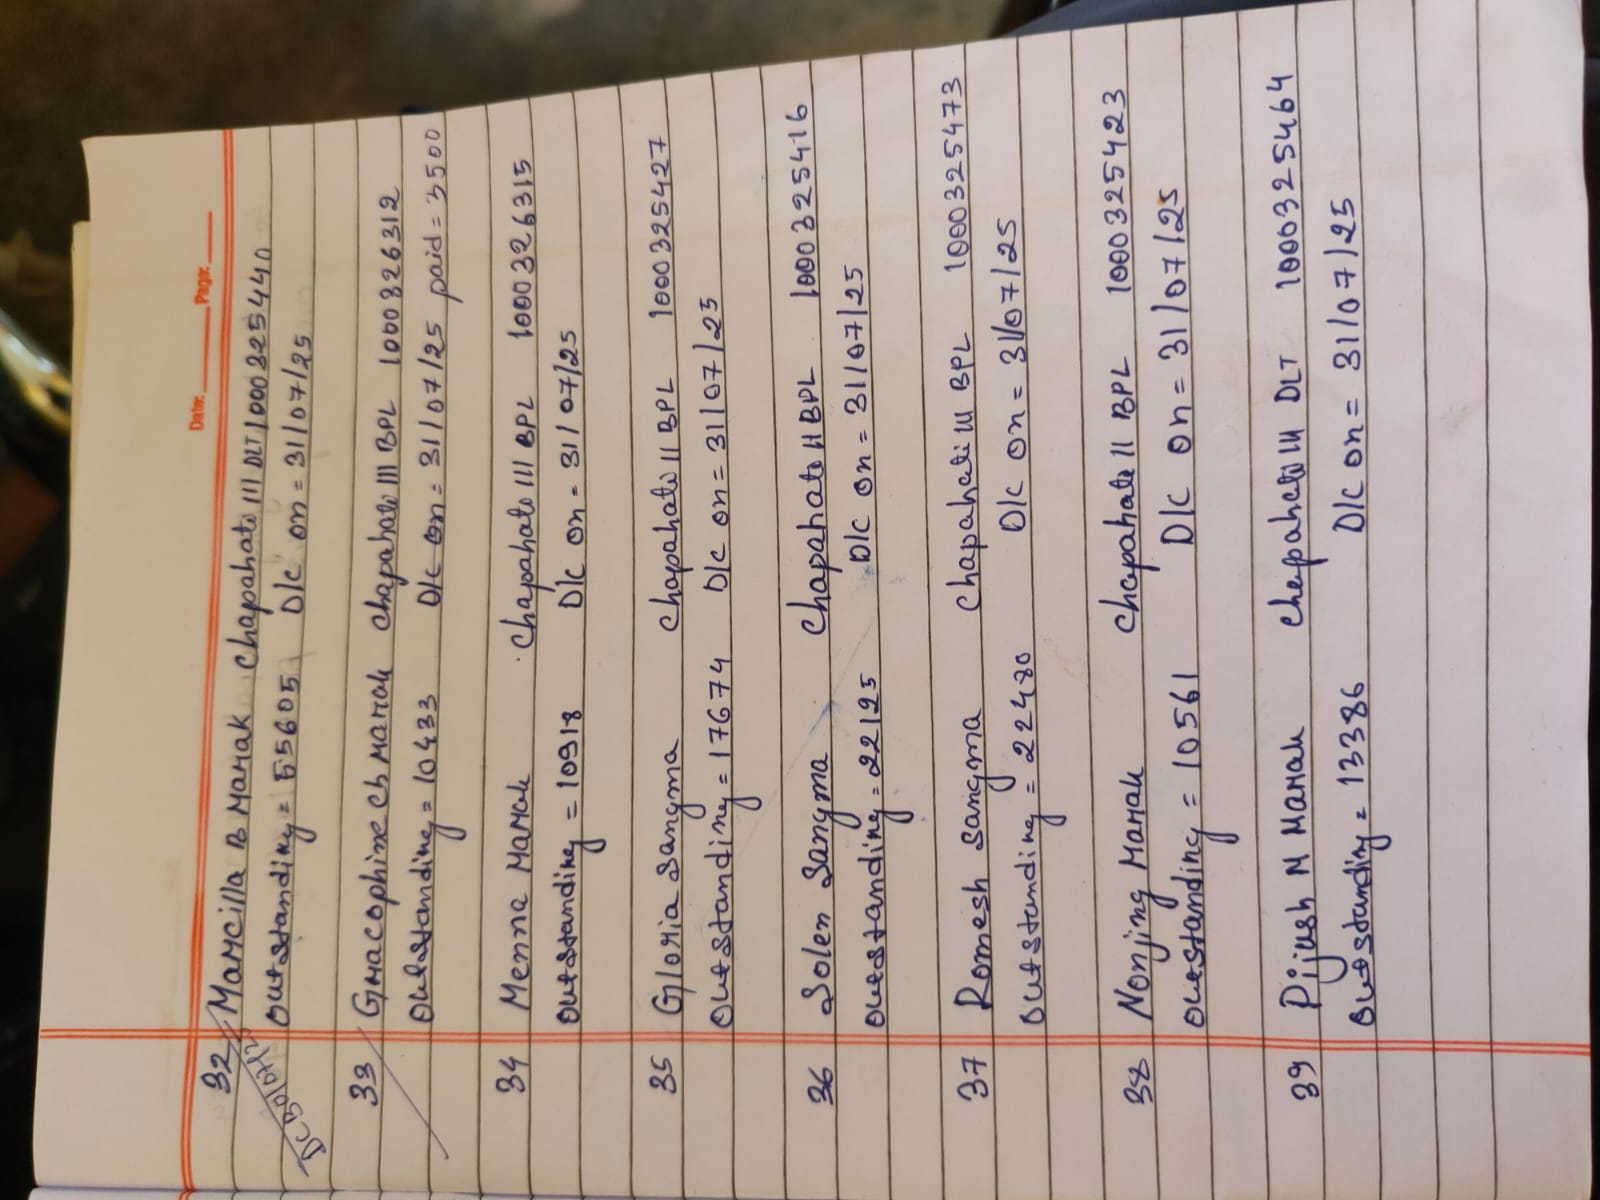 Date: Page:
32 Marcilla B Marak Chapahate III DLT 1000325440
DC 30/07/25 Outstanding = 55605 D/C on = 31/07/25
33 Gracophine Ch Marak Chapahate III BPL 1000326312
Outstanding = 10433 D/C on = 31/07/25 paid = 3500
34 Menna Marak Chapahate III BPL 1000326315
Outstanding = 10918 D/C on = 31/07/25
35 Gloria Sangma Chapahate II BPL 1000325427
Outstanding = 17674 D/C on = 31/07/25
36 Solen Sangma Chapahate II BPL 1000325416
Outstanding = 22125 D/C on = 31/07/25
37 Romesh Sangma Chapahati III BPL 1000325473
Outstanding = 22480 D/C on = 31/07/25
38 Nonjing Marak Chapahate II BPL 1000325423
Outstanding = 10561 D/C on = 31/07/25
39 Pijush M Marak Chapahate III DLT 1000325464
Outstanding = 13386 D/C on = 31/07/25